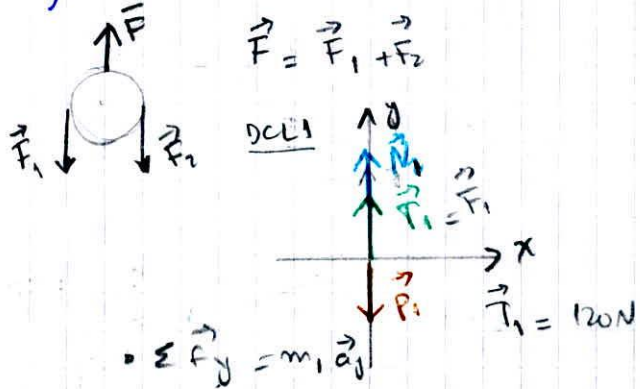 F⃗
F⃗ = F⃗₁ + F⃗₂
F⃗₁
F⃗₂
DCL1
y
N⃗₁
T⃗₁ = F⃗₁
x
P⃗₁
T⃗₁ = 120N
• Σ F⃗y = m₁ a⃗y